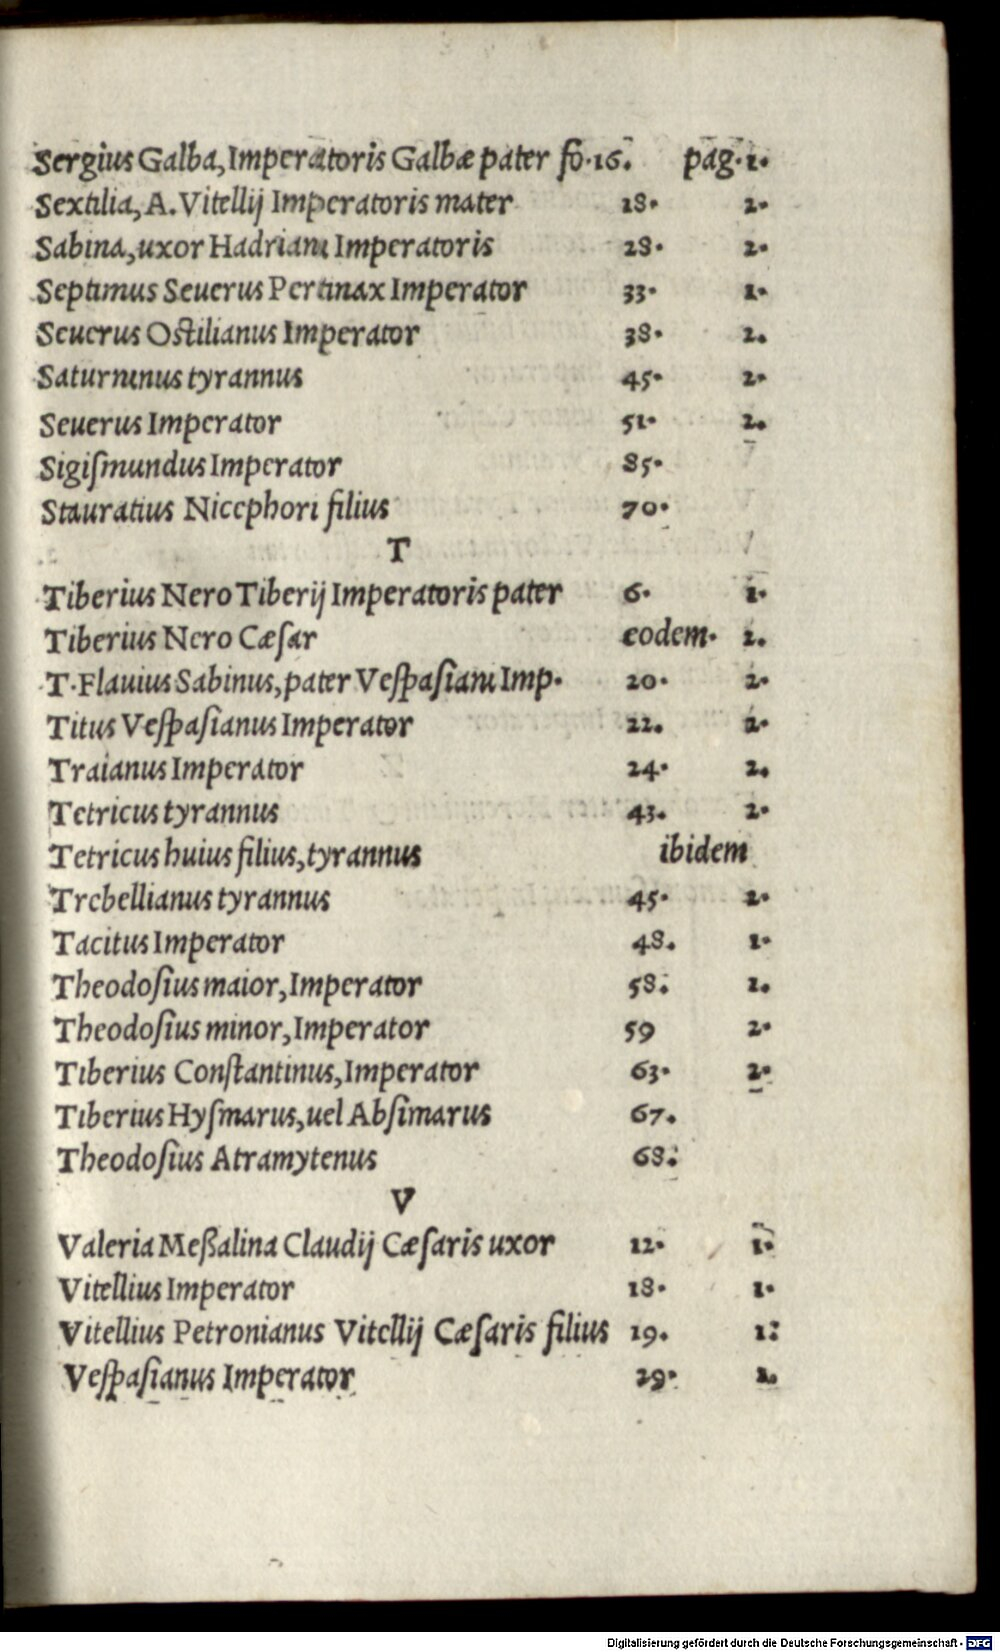 Sergius Galba, Imperatoris Galbæ pater fo. 16. pag. 1.
Sextilia, A. Vitellij Imperatoris mater 18. 2.
Sabina, uxor Hadriani Imperatoris 28. 2.
Septimus Seuerus Pertinax Imperator 33. 1.
Seuerus Ostilianus Imperator 38. 2.
Saturninus tyrannus 45. 2.
Seuerus Imperator 51. 2.
Sigiſmundus Imperator 85.
Stauratius Nicephori filius 70.
T
Tiberius Nero Tiberij Imperatoris pater 6. 1.
Tiberius Nero Cæſar eodem. 1.
T. Flauius Sabinus, pater Veſpaſiani Imp. 20. 2.
Titus Veſpaſianus Imperator 22. 2.
Traianus Imperator 24. 2.
Tetricus tyrannus 43. 2.
Tetricus huius filius, tyrannus ibidem
Trebellianus tyrannus 45. 2.
Tacitus Imperator 48. 1.
Theodoſius maior, Imperator 58. 1.
Theodoſius minor, Imperator 59 2.
Tiberius Conſtantinus, Imperator 63. 2.
Tiberius Hyſmarus, uel Abſimarus 67.
Theodoſius Atramytenus 68.
V
Valeria Meßalina Claudij Cæſaris uxor 12. 1.
Vitellius Imperator 18. 1.
Vitellius Petronianus Vitellij Cæſaris filius 19. 1.
Veſpaſianus Imperator 29.
Digitalisierung gefördert durch die Deutsche Forschungsgemeinschaft - DFG